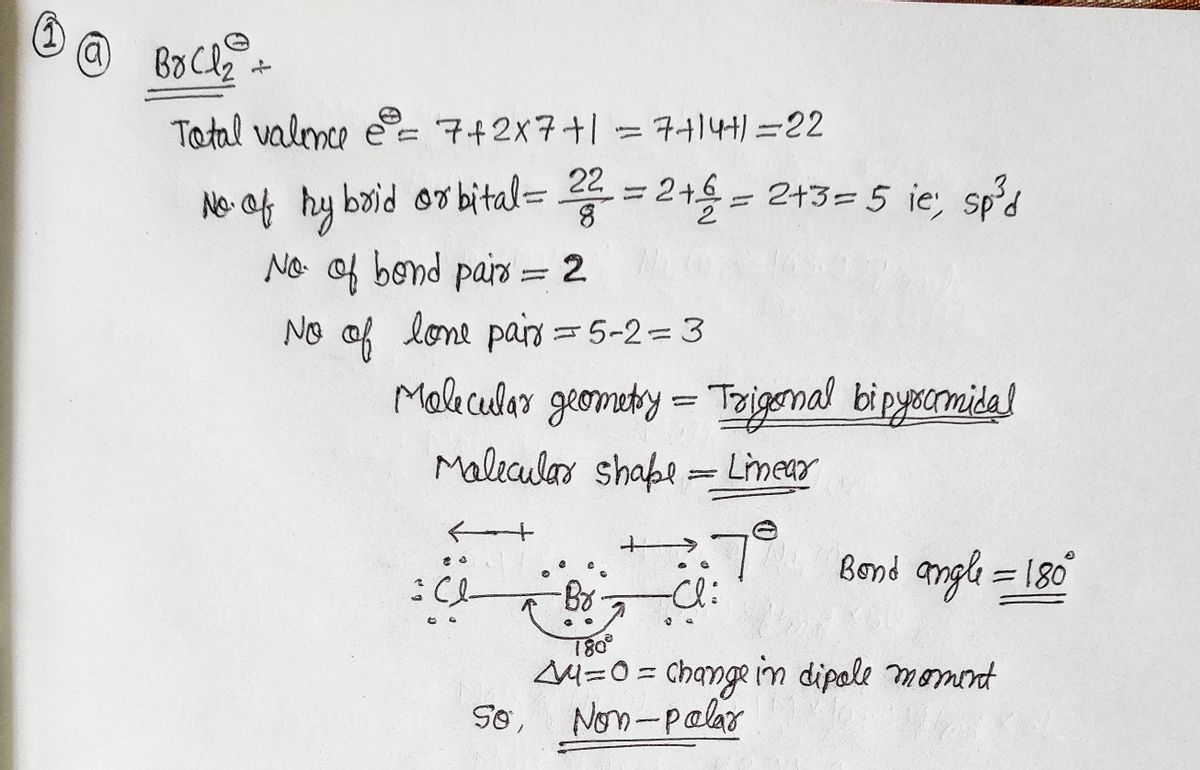 ① ⓐ BrCl₂⊖ ÷
Total valence e⊖ = 7+2×7+1 = 7+14+1 = 22
No. of hybrid orbital = 22/8 = 2+6/2 = 2+3 = 5 ie; sp³d
No. of bond pair = 2
No of lone pair = 5-2 = 3
Molecular geometry = Trigonal bipyramidal
Molecular shape = Linear
:Cl — Br — Cl: ⊖
180°
Bond angle = 180°
Δμ = 0 = change in dipole moment
So, Non-polar